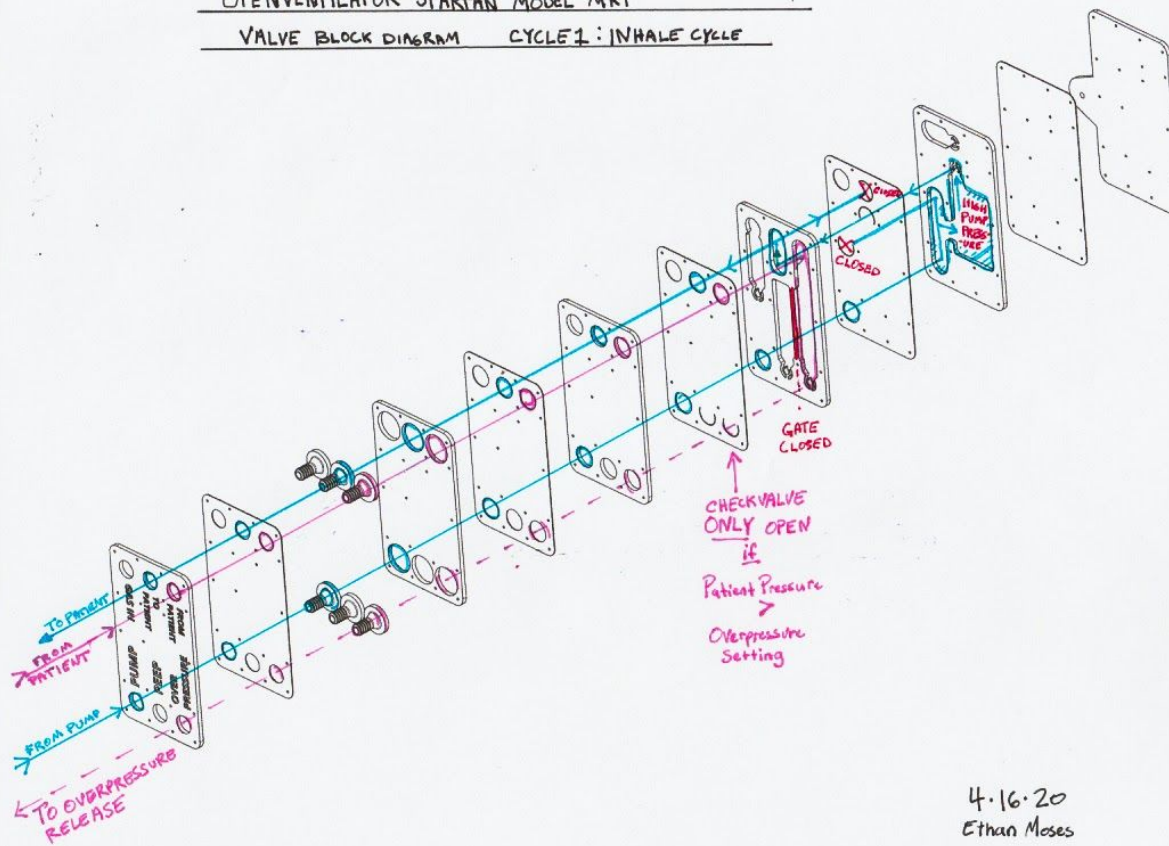 OPENVENTILATOR SPARTAN MODEL MK1
VALVE BLOCK DIAGRAM CYCLE 1: INHALE CYCLE
CLOSED
CLOSED
HIGH
PUMP
PRESS-
URE
GATE
CLOSED
CHECKVALVE
ONLY OPEN
if
Patient Pressure
>
Overpressure
Setting
TO PATIENT
FROM
PATIENT
FROM PUMP
TO OVERPRESSURE
RELEASE
GAS IN
TO
PATIENT
FROM
PATIENT
PUMP
PEEP
OVER
PRESSURE
4.16.20
Ethan Moses